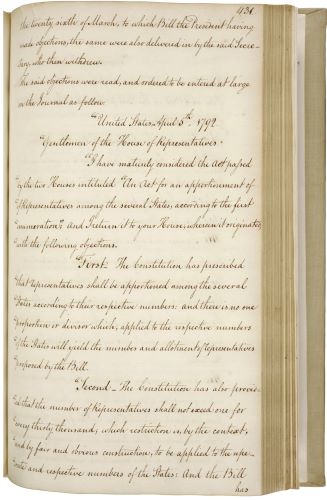 431.
the twenty sixth of March, to which Bill the President having
made objections, the same were also delivered in by the said Secre-
tary, who then withdrew.
The said objections were read, and ordered to be entered at large
on the Journal as follow.
"United States, April 5th. 1792.
"Gentlemen of the House of Representatives.
"I have maturely considered the Act passed
by the two Houses intituled "An Act for an apportionment of
Representatives among the several States, according to the first
enumeration," And I return it to your House, wherein it originated,
with the following objections.
"First – The Constitution has prescribed
that Representatives shall be apportioned among the several
States according to their respective numbers: and there is no one
proportion or divisor which, applied to the respective numbers
of the States will yield the number and allotment of Representatives
proposed by the Bill.
"Second – The Constitution has also provid-
ed that the number of Representatives shall not exceed one for
every thirty thousand; which restriction is, by the context,
and by fair and obvious construction, to be applied to the sepa-
rate and respective numbers of the States: And the Bill
has